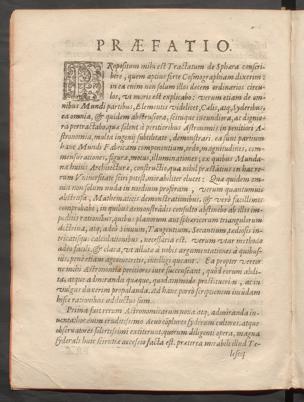 PRÆFATIO.
PRopositum mihi est Tractatum de Sphæra conscri
bere, quem aptius forte Cosmographiam dixerim:
in ea enim non solum illos decem ordinarios circu
los, ex more est explicabo: verum etiam de om
nibus Mundi partibus, Elementis videlicet, Cælis, atq; Syderibus,
ea omnia, & quidem abstrusiora, scituque iucundiora, ac dignio
ra pertractabo, quæ silent à peritioribus Astronomis; in penitiori A-
stronomia, multa ingenij subtilitate, demonstrari. ea sunt partium
hanc Mundi Fabricam componentium, ordo, magnitudines, com
mensurationes, figura, motus, illuminationes;
næ huius Architectura, constructio, qua nihil præstātius in hac re-
rum Vniuersitate sciri possit, mirabiliter elucet: Quæ quidem om
nia non solum nuda in medium proferam, verum quantumuis
abstrusa, Mathematicis demonstrationibus, & verò facillimis
comprobabo; in quibus demonstrādis consulto abstineo ab illis im-
peditis rationibus, quibus planorum aut sphæricorum triangulorum
doctrina, atq; adeò Sinuum, Tangentium, Secantium, tædiosis in-
tricatisque calculationibus, necessaria est. verum viæ methodo
adeo facili, & clara, ut nullæ à nobis argumentationes à quibus-
uis, penè etiam
nobis Astronomiæ peritiores iure succenseant, quòd eorum abdi-
ta, atque admiranda quæque, quodammodo prostituerim, ac in
vulgus auserim propalanda. Ad hanc porrò scriptionem inuidam
hisce rationibus adductus sum.
Prima fuit rerum Astronomicarum noua atq; admiranda in-
uenta: hoc enim eruditissimo
obseruatores solertissimi extiterunt, quorum diligenti opera, magna
syderali huic scientiæ accessio facta est. præterea mirabili illud Te-
lescopij